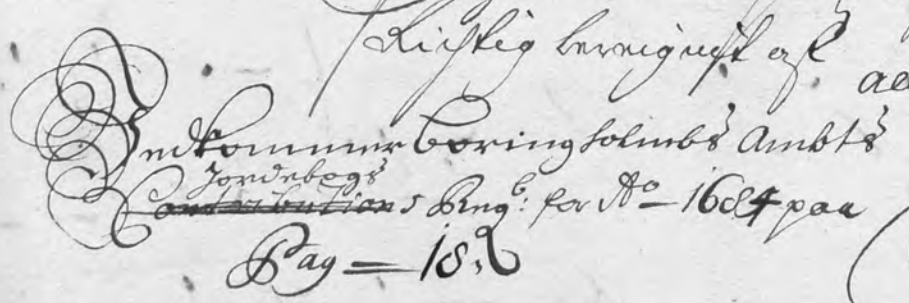 Richtig bereignet af
Vedkommer Boringholmbs Ambts
Jordebogs
Contributions Regb: for Ao 1684 paa
Pag 18.